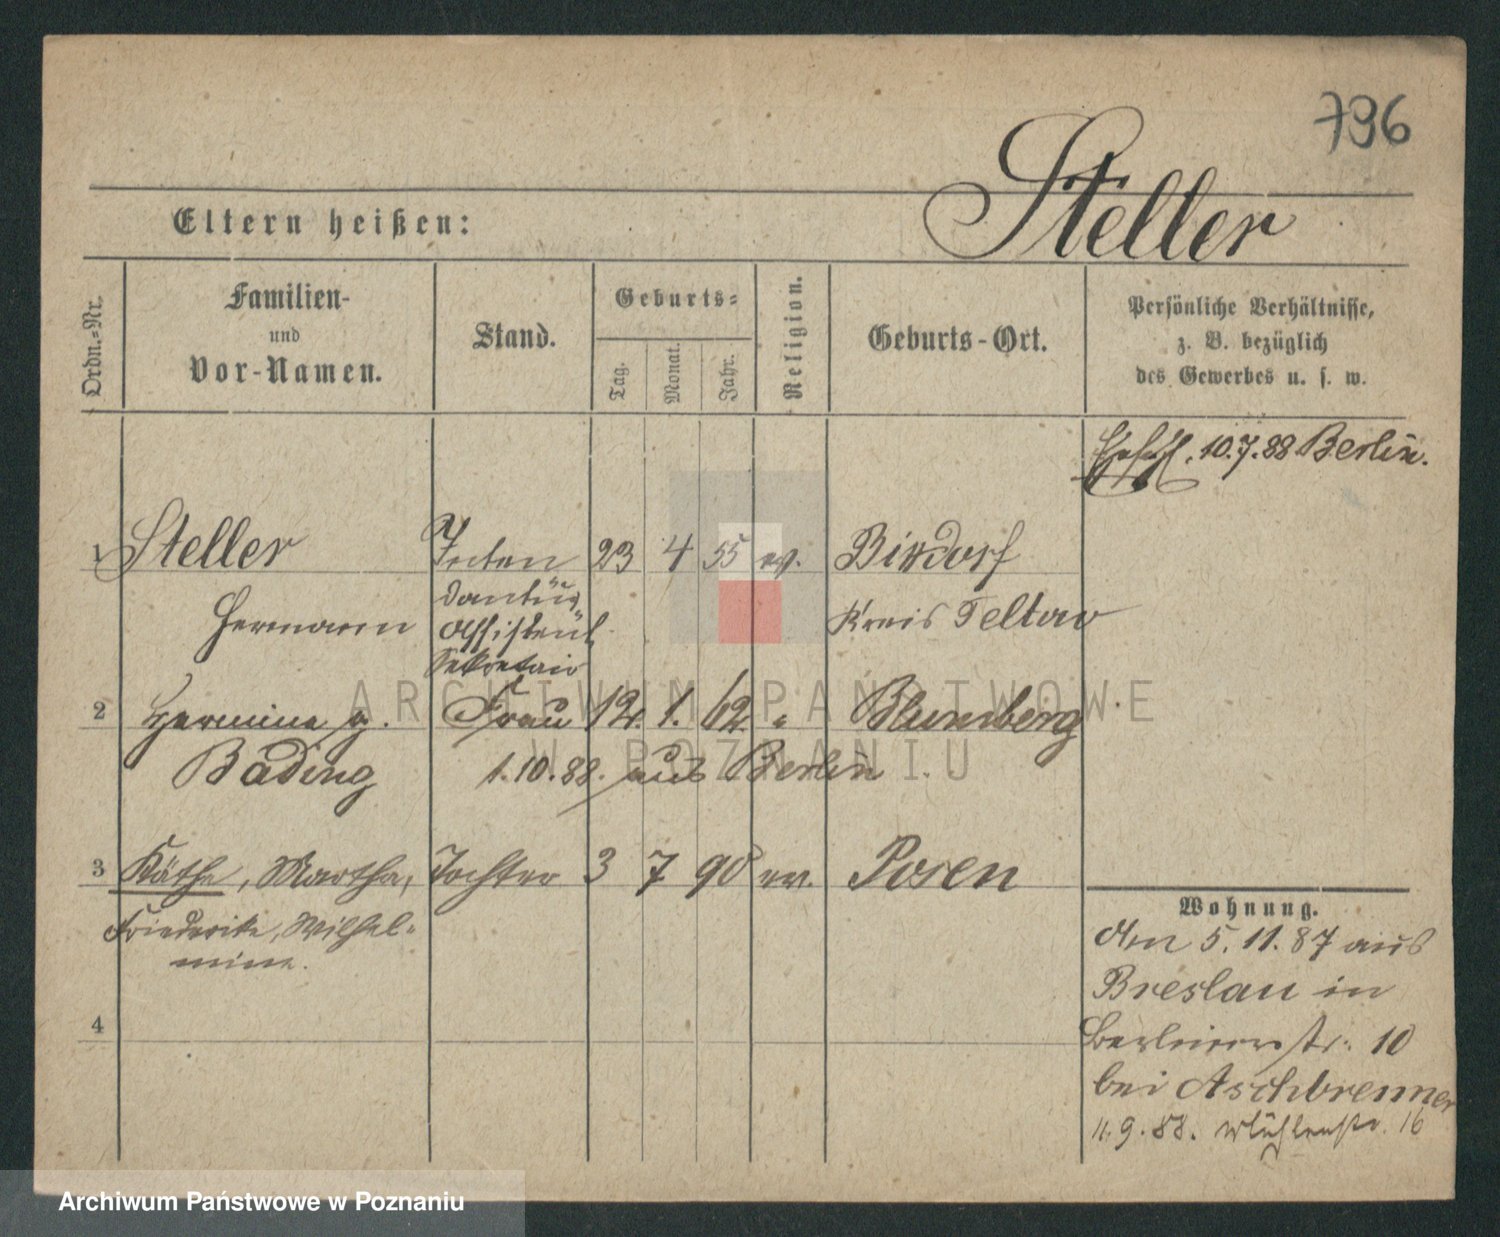 796
Steller
Eltern heißen:
Ordn.-Nr.
Familien-
und
Vor-Namen.
Stand.
Geburts-
Tag.
Monat.
Jahr.
Religion.
Geburts-Ort.
Persönliche Verhältnisse,
z. B. bezüglich
des Gewerbes u. s. w.
10.7.88 Berlin.
1 Steller Inten 23 4 55 ev.
Hermann dantur
Assistent
Sekretair
Kreis Teltow
2 Hermine g. Frau 12. 1. 62 " Blumberg
Bading 1.10.88. aus Berlin
3 Käthe, Martha, Tochter 3 7 90 ev. Posen
Friederike, Wilhel-
mine.
4
Wohnung.
Am 5.11.87 aus
Breslau in
Berlinerstr. 10
bei Aschbrenner
11.9.88. Mühlenstr. 16
ARCHIWUM PAŃSTWOWE
W POZNANIU
Archiwum Państwowe w Poznaniu